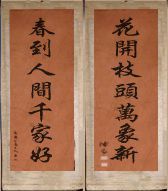 花開枝頭萬象新
春到人間千家好